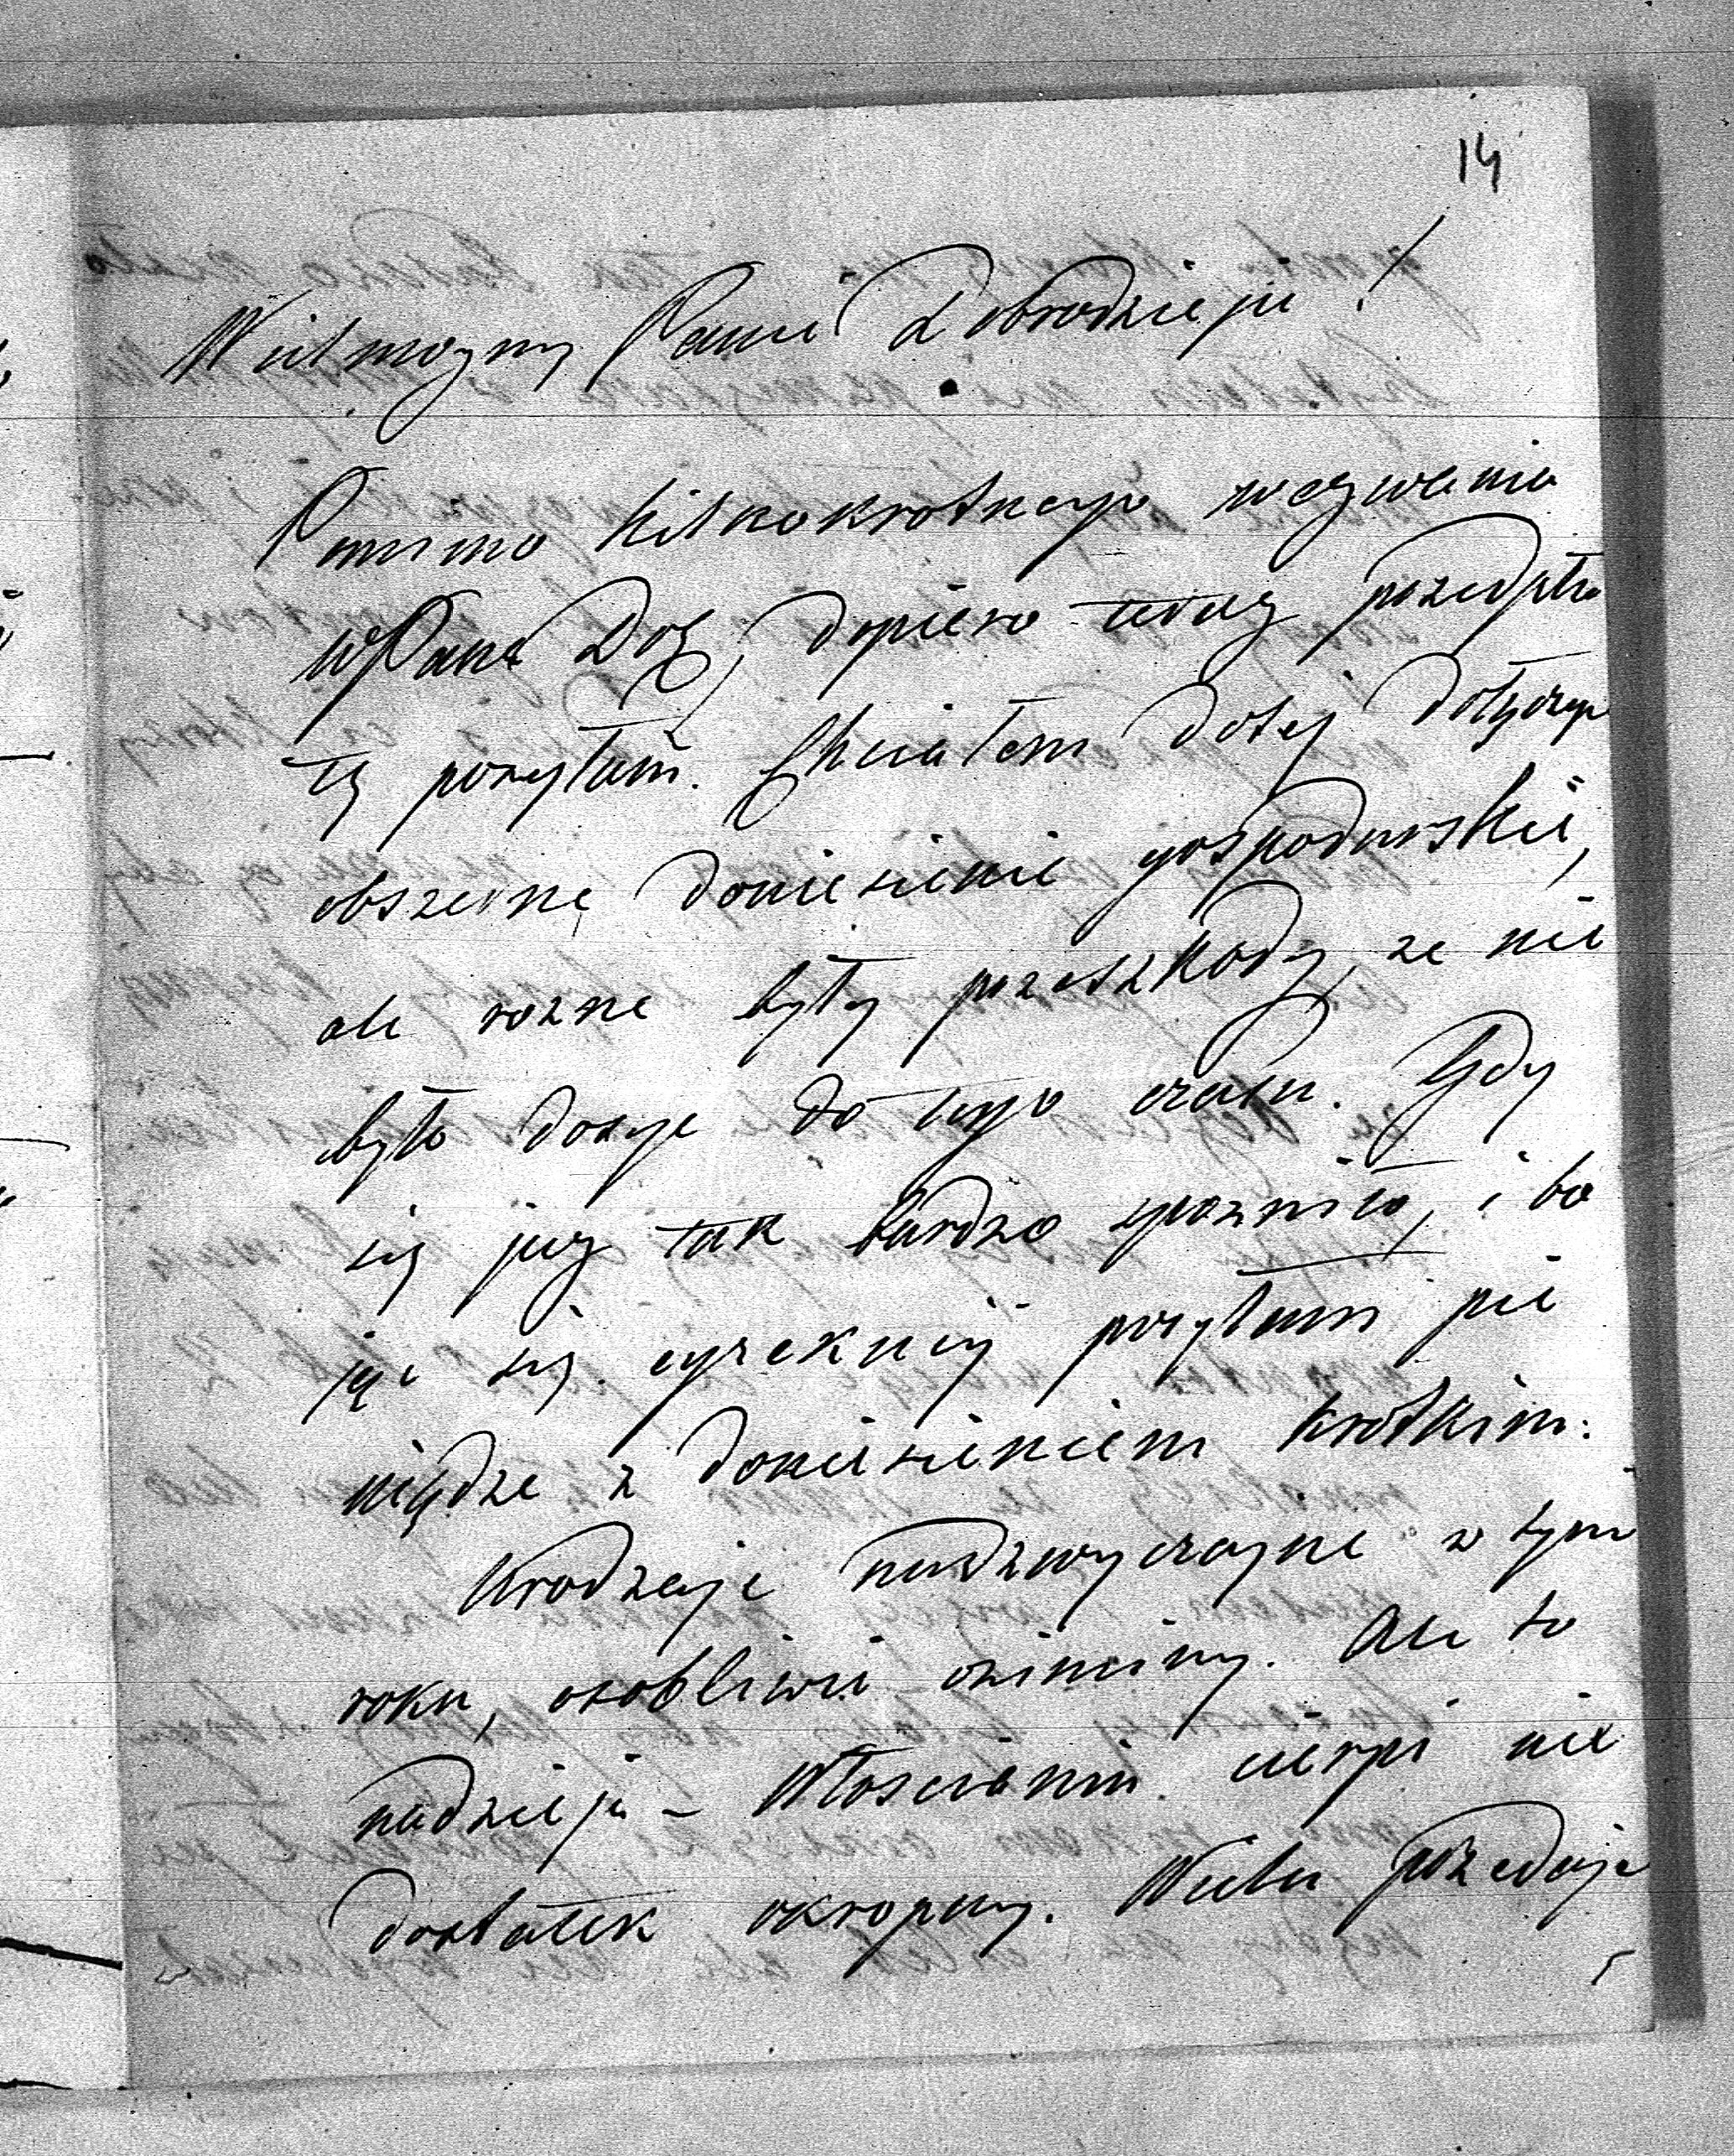 14
Wielmożny Panie Dobrodzieju!
Pomimo kilkokrotnego wezwania
WPana Dob, dopiero teraz przedpła
tę posyłam. Chciałem do tej dołączyć
obszerne doniesienie gospodarskie,
ale rozne były przeszkody, ze nie
było dosyc do tego czasu. Gdy
się juz tak bardzo spozniło, i bo
jąc się egzekucij posyłam pie
niądze z doniesieniem krotkim:
Urodzaje nadzwyczajne w tym
roku, osobliwie oziminy. Ale to
nadzieja - Włoscianin cierpi nie
dostatek okropny. Wielu przedaje